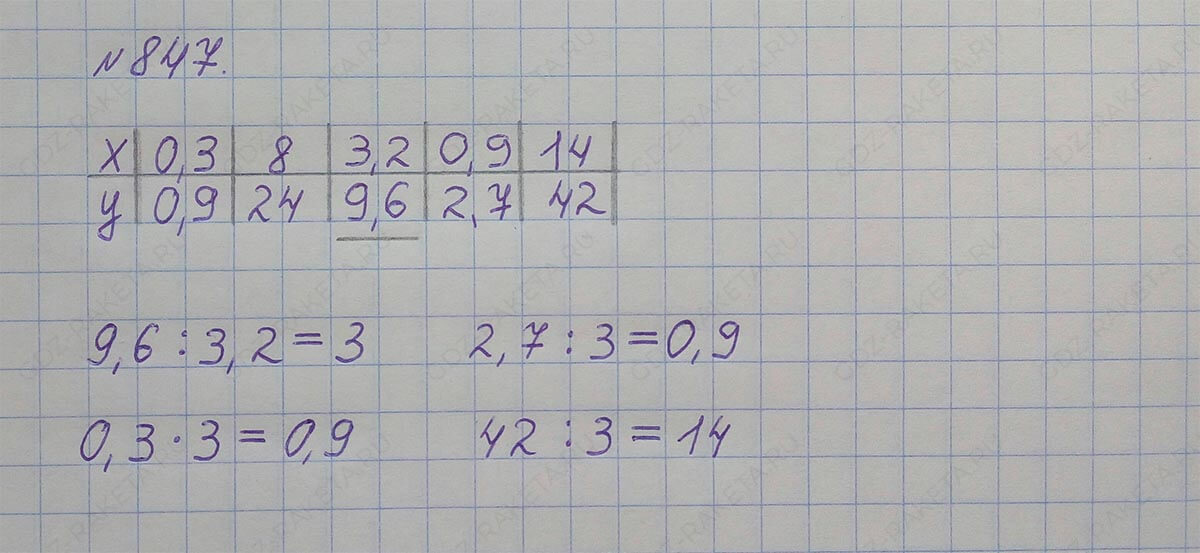 №847.
x 0,3 8 3,2 0,9 14
y 0,9 24 9,6 2,7 42
9,6 : 3,2 = 3 2,7 : 3 = 0,9
0,3 · 3 = 0,9 42 : 3 = 14
GDZ-RAKETA.RU